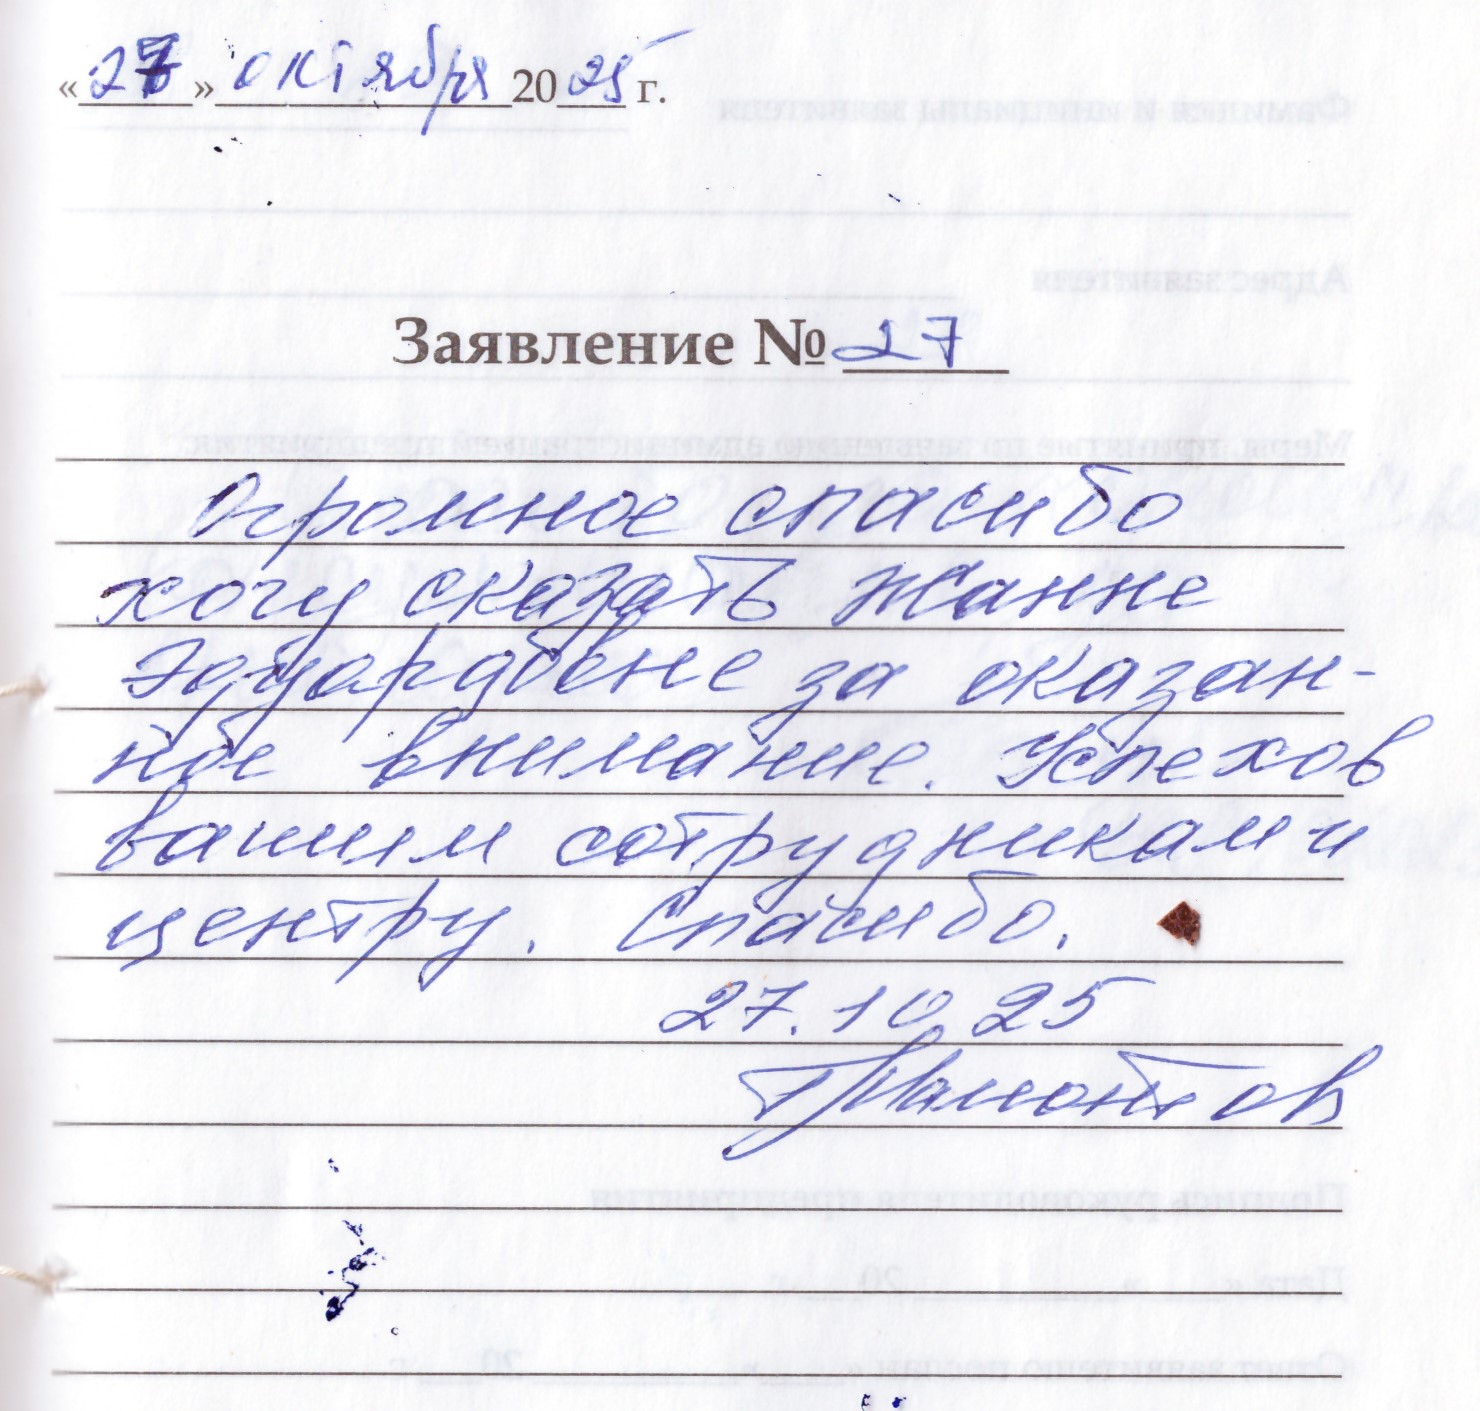 «27» октября 2025 г.
Заявление № 27
Огромное спасибо
хочу сказать Жанне
Эдуардовне за оказан-
ное внимание. Успехов
вашим сотрудникам и
центру. Спасибо.
27.10.25
Мамонтов